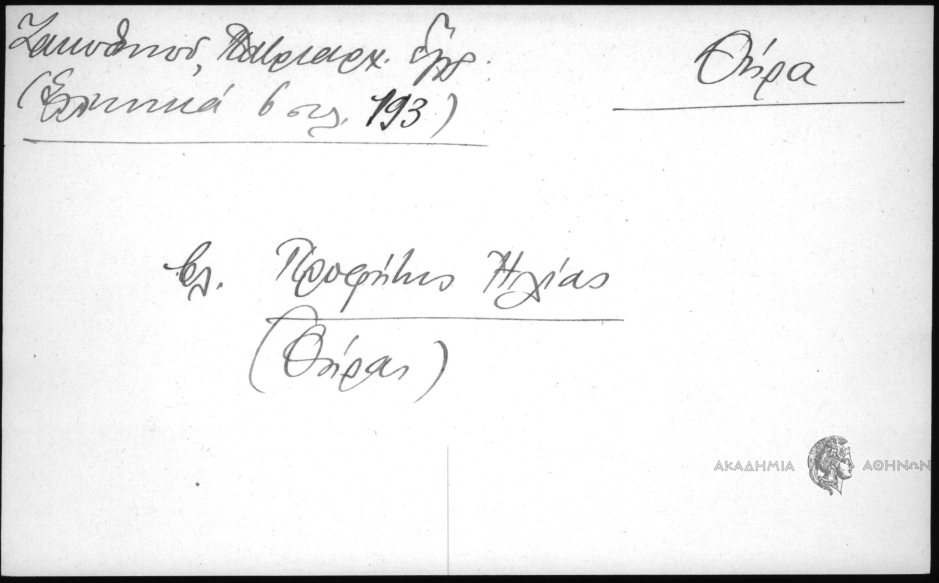 Ζακυθηνού, Πατριαρχ. ἔγγρ.
Θήρα
(Ἑλληνικά 6 σελ. 193)
βλ. Προφήτης Ἠλίας
(Θήρας)
ΑΚΑΔΗΜΙΑ ΑΘΗΝΩΝ